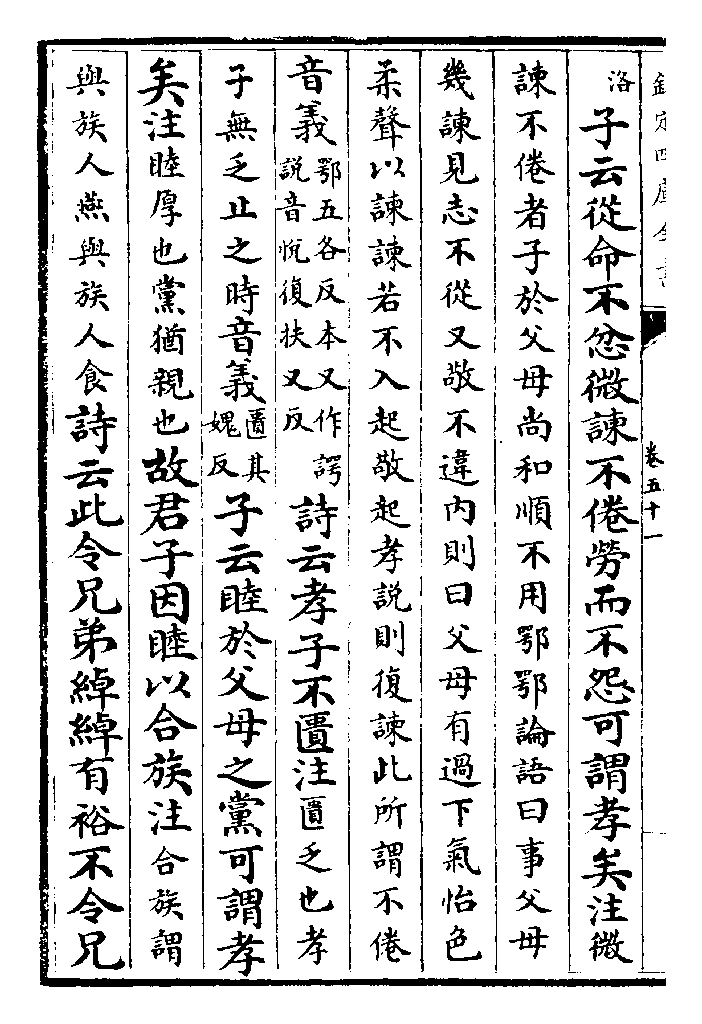 欽定四庫全書
卷五十一
洛子云從命不忿微諫不倦勞而不怨可謂孝矣注微
諫不倦者子於父母尚和順不用鄂鄂論語曰事父母
幾諫見志不從又敬不違内則曰父母有過下氣怡色
柔聲以諫諫若不入起敬起孝說則復諫此所謂不倦
音義鄂五各反本又作諤說音悅復扶又反詩云孝子不匱注匱乏也孝
子無乏止之時音義匱其媿反子云睦於父母之黨可謂孝
矣注睦厚也黨猶親也故君子因睦以合族注合族謂
與族人燕與族人食詩云此令兄弟綽綽有裕不令兄